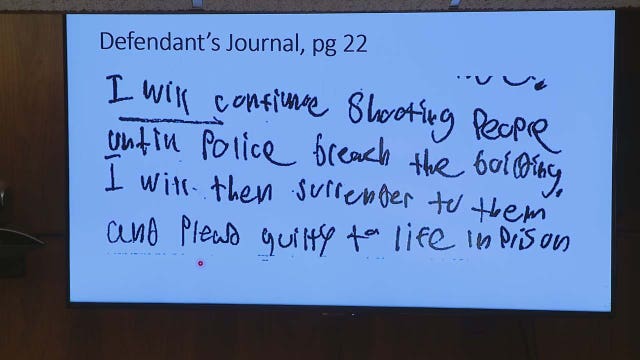 Defendant's Journal, pg 22
I will continue shooting People
until Police breach the building,
I will then surrender to them
and Plead guilty to life in Prison